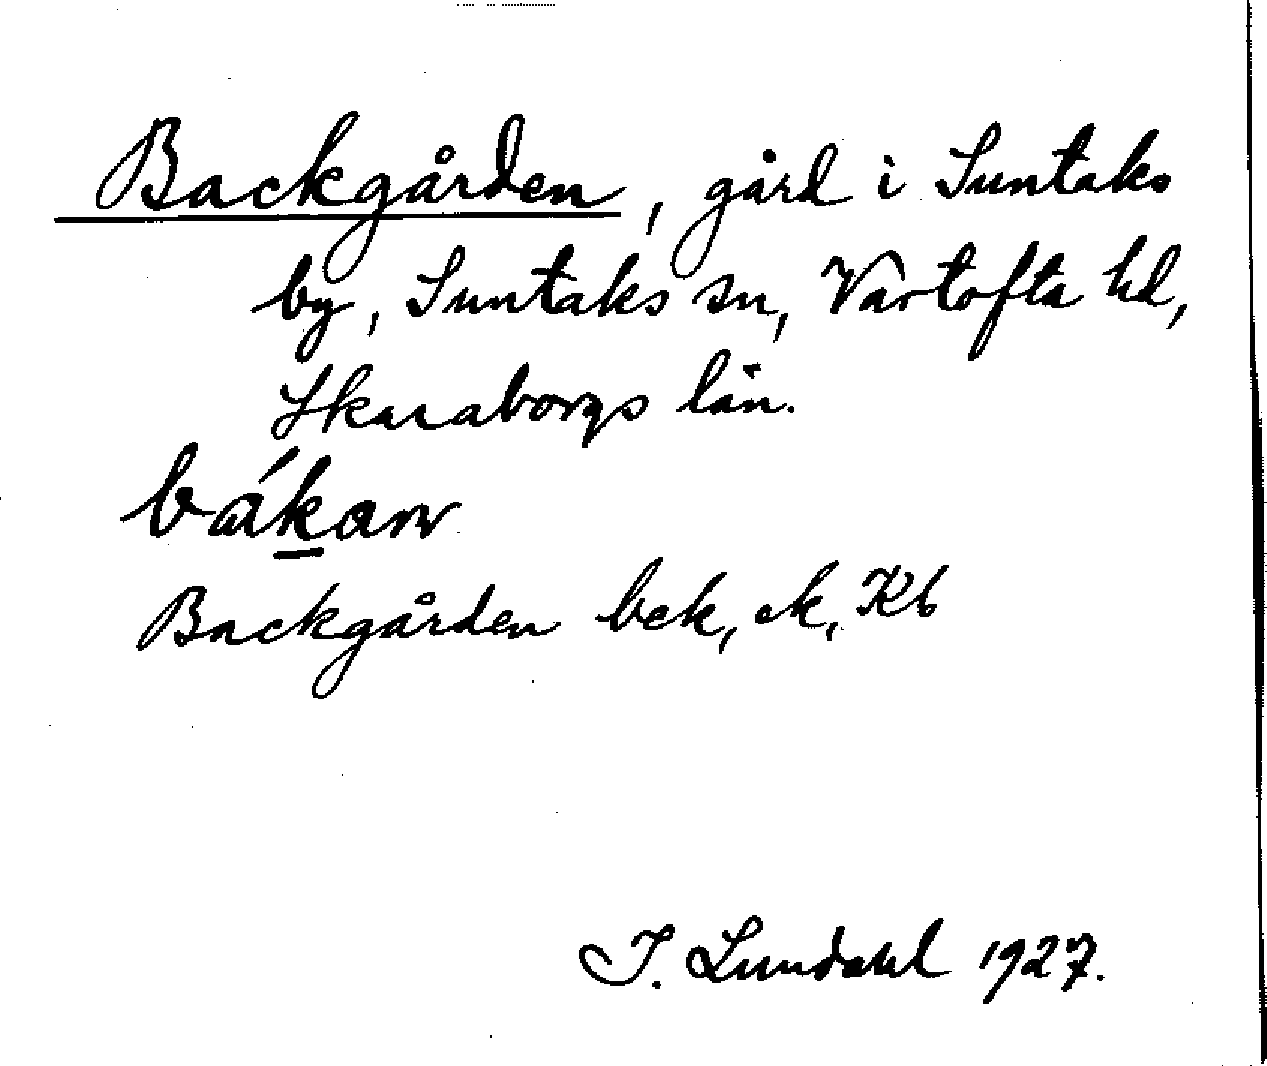 Backgården, gård i Suntaks
by, Suntaks sn, Vartofta hd,
Skaraborgs län.
bákaɴ
Backgården bek, ek, Kb
I. Lundahl 1927.